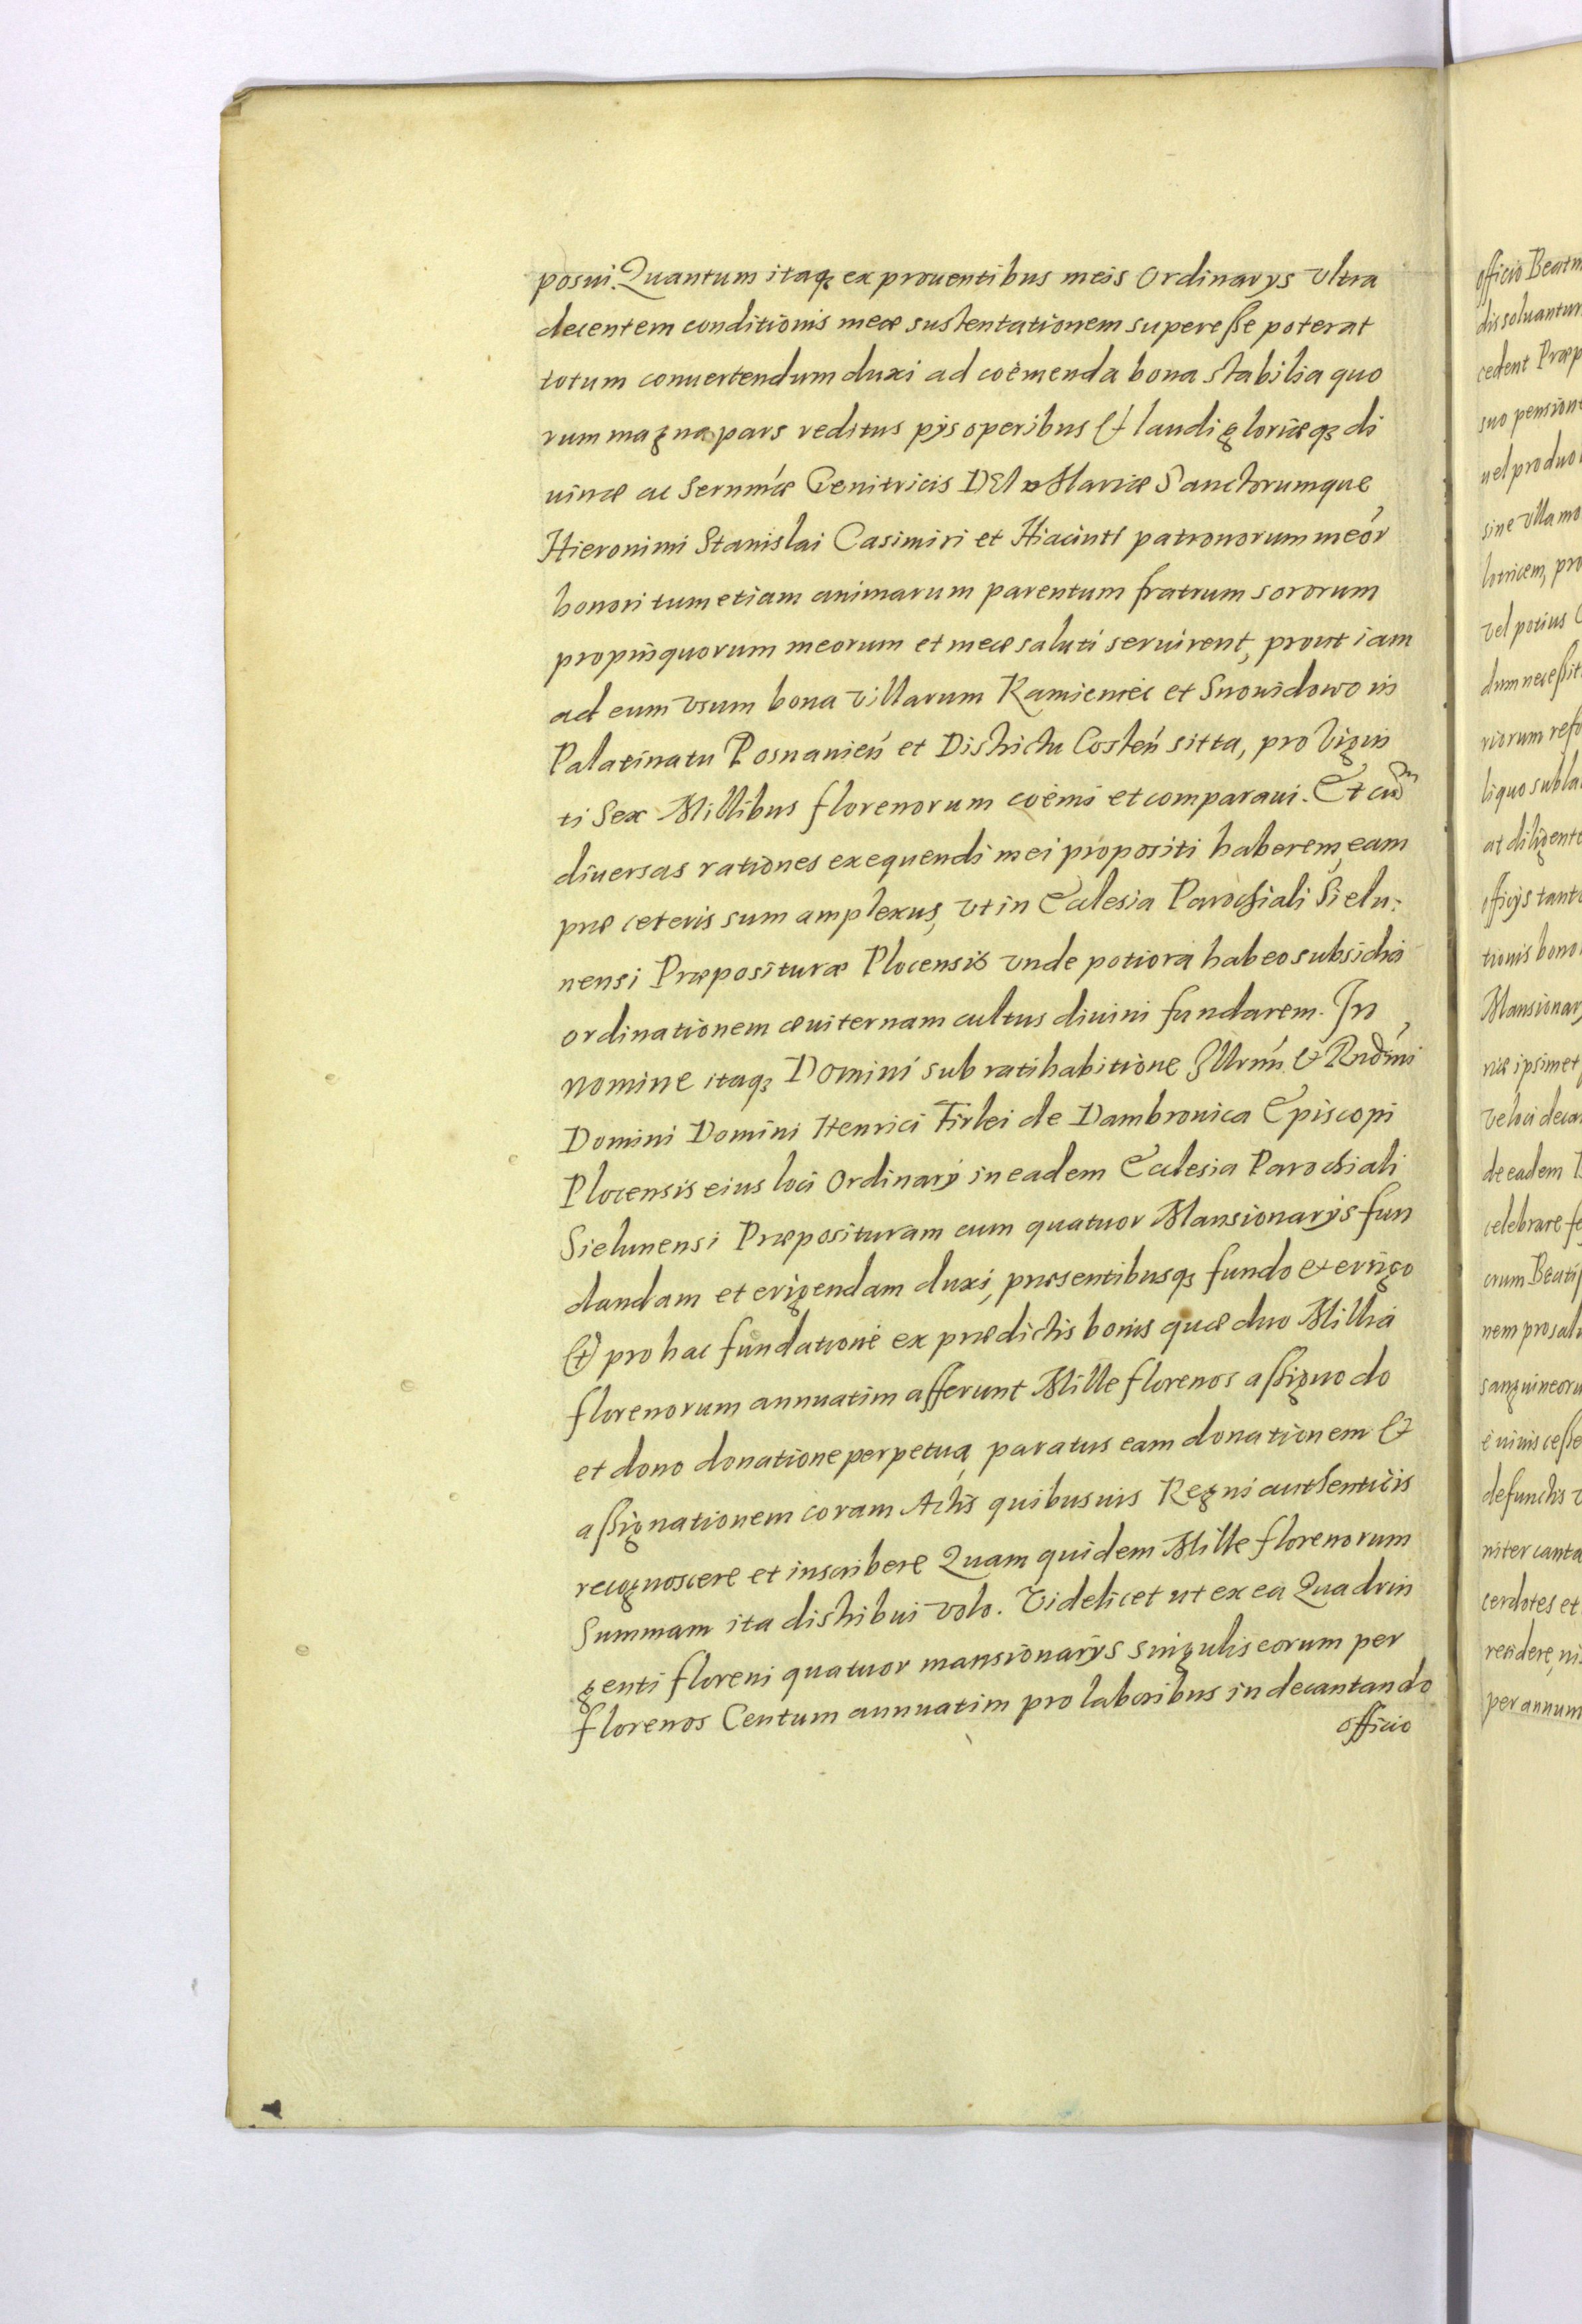 posui. Quantum itaq₃ ex prouentibus meis Ordinarys vltra
decentem conditionis meæ sustentationem superesse poterat
totum conuertendum duxi ad coëmenda bona stabilia quo
rum magna pars reditus pijs operibus & laudi gloriæq₃ di
uinæ ac Sernmæ Genitricis DEI Mariæ Sanctorumque
Hieronimi Stanislai Casimiri et Hiacinti patronorum meor
honori tum etiam animarum parentum fratrum sororum
propinquorum meorum et meæ saluti seruirent, prout iam
ad eum vsum bona villarum Kamieniec et Snouidowo in
Palatinatu Posnanień et Districtu Costeń sitta, pro Vigin
ti Sex Millibus florenorum coëmi et comparaui. Et cum
diuersas rationes exequendi mei propositi haberem, eam
præ ceteris sum amplexus, vt in Ecclesia Parochiali Sielu:
nensi Præpositurae Plocensis vnde potiora habeo subsidia
ordinationem æuiternam cultus diuini fundarem. In
nomine itaq₃ Domini sub ratihabitione Illrmi & Rndmi
Domini Domini Henrici Firlei de Dambrouica Episcopi
Plocensis eius loci Ordinarij in eadem Ecclesia Parochiali
Sielunensi Præposituram cum quatuor Mansionarijs fun
dandam et erigendam duxi, præsentibusq₃ fundo et erigo
& pro hac fundatione ex prædictis bonis quæ duo Millia
florenorum annuatim afferunt Mille florenos assigno do
et dono donatione perpetua, paratus eam donationem &
assignationem coram Actis quibusuis Regni authenticis
recognoscere et inscribere Quam quidem Mille florenorum
Summam ita distribui volo. Videlicet ut ex ea Quadrin
genti floreni quatuor mansionarijs singulis eorum per
florenos Centum annuatim pro laboribus in decantando
officio
officio Beatm
dissoluantur
cedent Præp
suo pension
uel pro duo
sine vlla mo
lotricem, pro
vel potius
dum necessit
riorum refo
liquo subla
at diligent
officijs tant
tionis bono
Mansionar
riæ ipsimet
ve loci decan
de eadem
celebrare fe
crum Beati
nem pro salu
sanguineoru
è uiuis cesse
defunctis
niter canta
cerdotes et
residere, ni
per annum